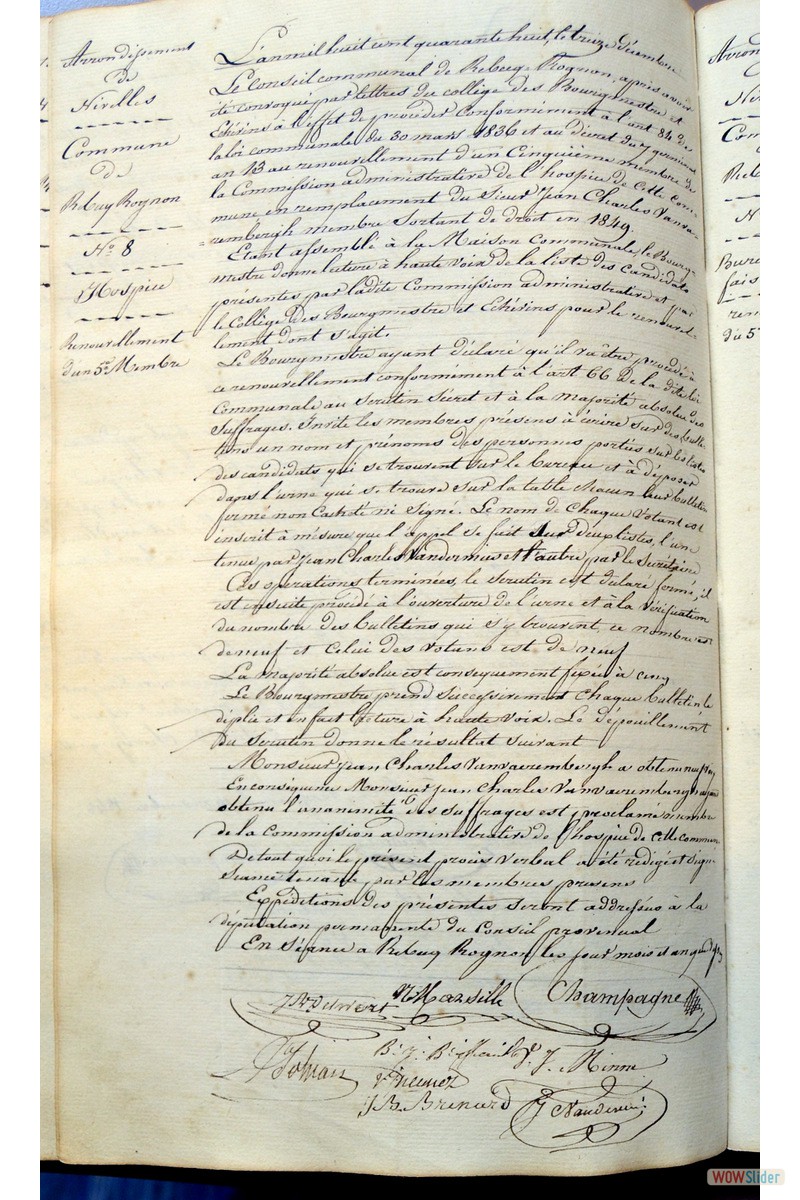 Arrondissement
de
Nivelles
Commune
de
Rebecq Rognon
No 8
Hospice
Renouvellement
d'un 5me Membre
L'an mil huit cent quarante huit, le treize décembre
Le Conseil communal de Rebecq Rognon, après avoir
été convoqué par lettres du collège des Bourgmestre et
Echevins à l'effet de procéder conformément à l'art 84 de
la loi communale du 30 mars 1836 et au décret du 7 germinal
an 13 au renouvellement d'un Cinquième membre de
la Commission administrative de l'hospice de cette com-
mune en remplacement du Sieur Jean Charles Vanva-
erembergh membre Sortant de droit en 1849.
Etant assemblé à la Maison Communale, le Bourg-
mestre donne lecture à haute voix de la liste des candidats
présentés par ladite Commission administrative et par
le Collège des Bourgmestre et Echevins pour le renouvel-
lement dont s'agit.
Le Bourgmestre ayant déclaré qu'il va être procédé à
ce renouvellement conformément à l'art 66 de la dite loi
Communale au Scrutin Secret et à la majorité absolue des
Suffrages. Invite les membres présens à écrire sur des bulle-
tins un nom et prénoms des personnes portées sur les listes
des candidats qui se trouvent sur le bureau et à déposer
dans l'urne qui se trouve sur la table chacun leur bulletin
fermé non Cacheté ni Signé. Le nom de Chaque Votant est
inscrit à mésure que l'appel se fait Sur deux listes, l'une
tenue par Jean Charles Vandermies et l'autre par le Secrétaire
Ces opérations terminées, le Scrutin est déclaré fermé, il
est ensuite procédé à l'ouverture de l'urne et à la vérification
du nombre des bulletins qui s'y trouvent, ce nombre est
de neuf et Celui des Votans est de neuf
La majorité absolue est conséquement fixée à cinq
Le Bourgmestre prend successivement Chaque bulletin le
déplie et en fait lecture à haute voix. Le dépouillement
du Scrutin donne le résultat suivant
Monsieur Jean Charles Vanvaerembergh a obtenu neuf
En conséquence Monsieur Jean Charles Vanvaerembergh ayant
obtenu l'unanimité des suffrages est proclamé membre
de la Commission administrative de l'hospice de cette commune
De tout quoi le présent procès Verbal a été rédigé et signé
Seance tenante par les membres présens
Expéditions des présentes seront addressées à la
députation permanente du Conseil provencial
En Séance à Rebecq Rognon, les jour mois et an que dessus
N Marsille Champagne
J. Minne
J B. Brenard